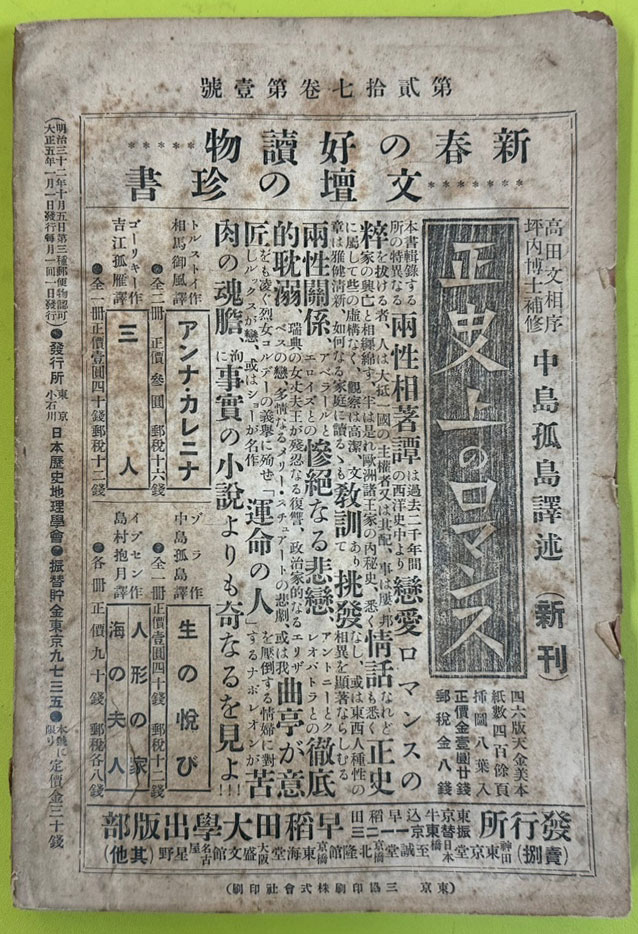 第貳拾七卷第壹號
新春の好讀物
文壇の珍書
高田文相序
坪内博士補修
中島孤島譯述(新刊)
正史上のロマンス
四六版天金美本
紙數四百餘頁
挿圖八葉入
正價金壹圓廿錢
郵税金八錢
本書輯錄する所の特異なる兩性相著譚は過去二千年間の西洋史中より戀愛ロマンスの
粹を拔ける者、人は大抵一國の主權者又は其配、事は屢邦家の興亡と相纏綿す、半は是れ歐洲諸王家の内秘史、悉く情話なれども悉く正史
に屬して些の虛構なく、觀察は高潔、文章は雅健清新、如何なる家庭に讀るゝも敎訓ありて挑發なし、或は東西人種性の相異を顯著ならしむる
兩性關係アベラールとエロイズとの慘絶なる悲戀、アントニーとクレオパトラとの徹底
的耽溺瑞典の女丈夫王が殘忍なる復讐、政治家的なるエリザベスの戀、多情なるメリー・スチュアートの悲劇、或は我曲亭が意
匠をも凌ぐ烈女コルデーの義擧に殉せしルックスが戀、或はショーが名作「運命の人」を壓倒する情婦に對するナポレオンが苦
肉の魂膽、洵に事實の小說よりも奇なるを見よ!!
トルストイ作
相馬御風譯
アンナ・カレニナ
●全二册 正價參圓 郵税十六錢
ゾラ作
中島孤島譯
生の悅び
●全一册 正價壹圓四十錢 郵税十二錢
ゴーリキー作
吉江孤雁譯
三人
●全一册正價壹圓四十錢郵税十二錢
イプセン作
島村抱月譯
人形の家
海の夫人
●各册正價九十錢 郵税各八錢
發行所 東京牛込早稻田 振替東京 早稻田大學出版部
(賣捌)神田東京堂 日本橋至誠堂 京橋北隆館 京橋東海堂 大阪盛文館 名古屋星野(其他)
(東京 三協印刷株式會社印刷)
明治三十二年十月五日第三種郵便物認可
大正五年一月一日發行(每月一回一日發行)
●發行所 東京小石川 日本歷史地理學會●振替貯金東京九七三五●本號に限り定價金三十錢